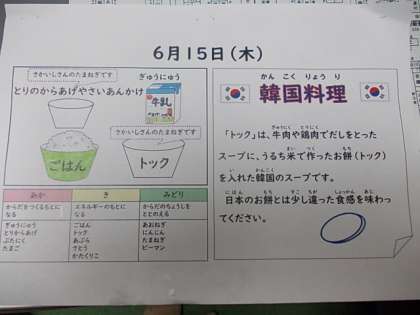 6月15日(木)
さかいしさんのたまねぎです
ぎゅうにゅう
とりのからあげやさいあんかけ
牛乳
さかいしさんのたまねぎです
ごはん
トック
かんこくりょうり
韓国料理
ぎゅうにく とりにく
「トック」は、牛肉や鶏肉でだしをとった
まい もち
スープに、うるち米で作ったお餅(トック)
い かんこく
を入れた韓国のスープです。
にほん もち すこ ちが しょっかん あじ
日本のお餅とは少し違った食感を味わっ
てください。
あか き みどり
からだをつくるもとに エネルギーのもとに からだのちょうしを
なる なる ととのえる
ぎゅうにゅう ごはん あおねぎ
とりからあげ トック にんじん
ぶたにく あぶら たまねぎ
たまご さとう ピーマン
かたくりこ